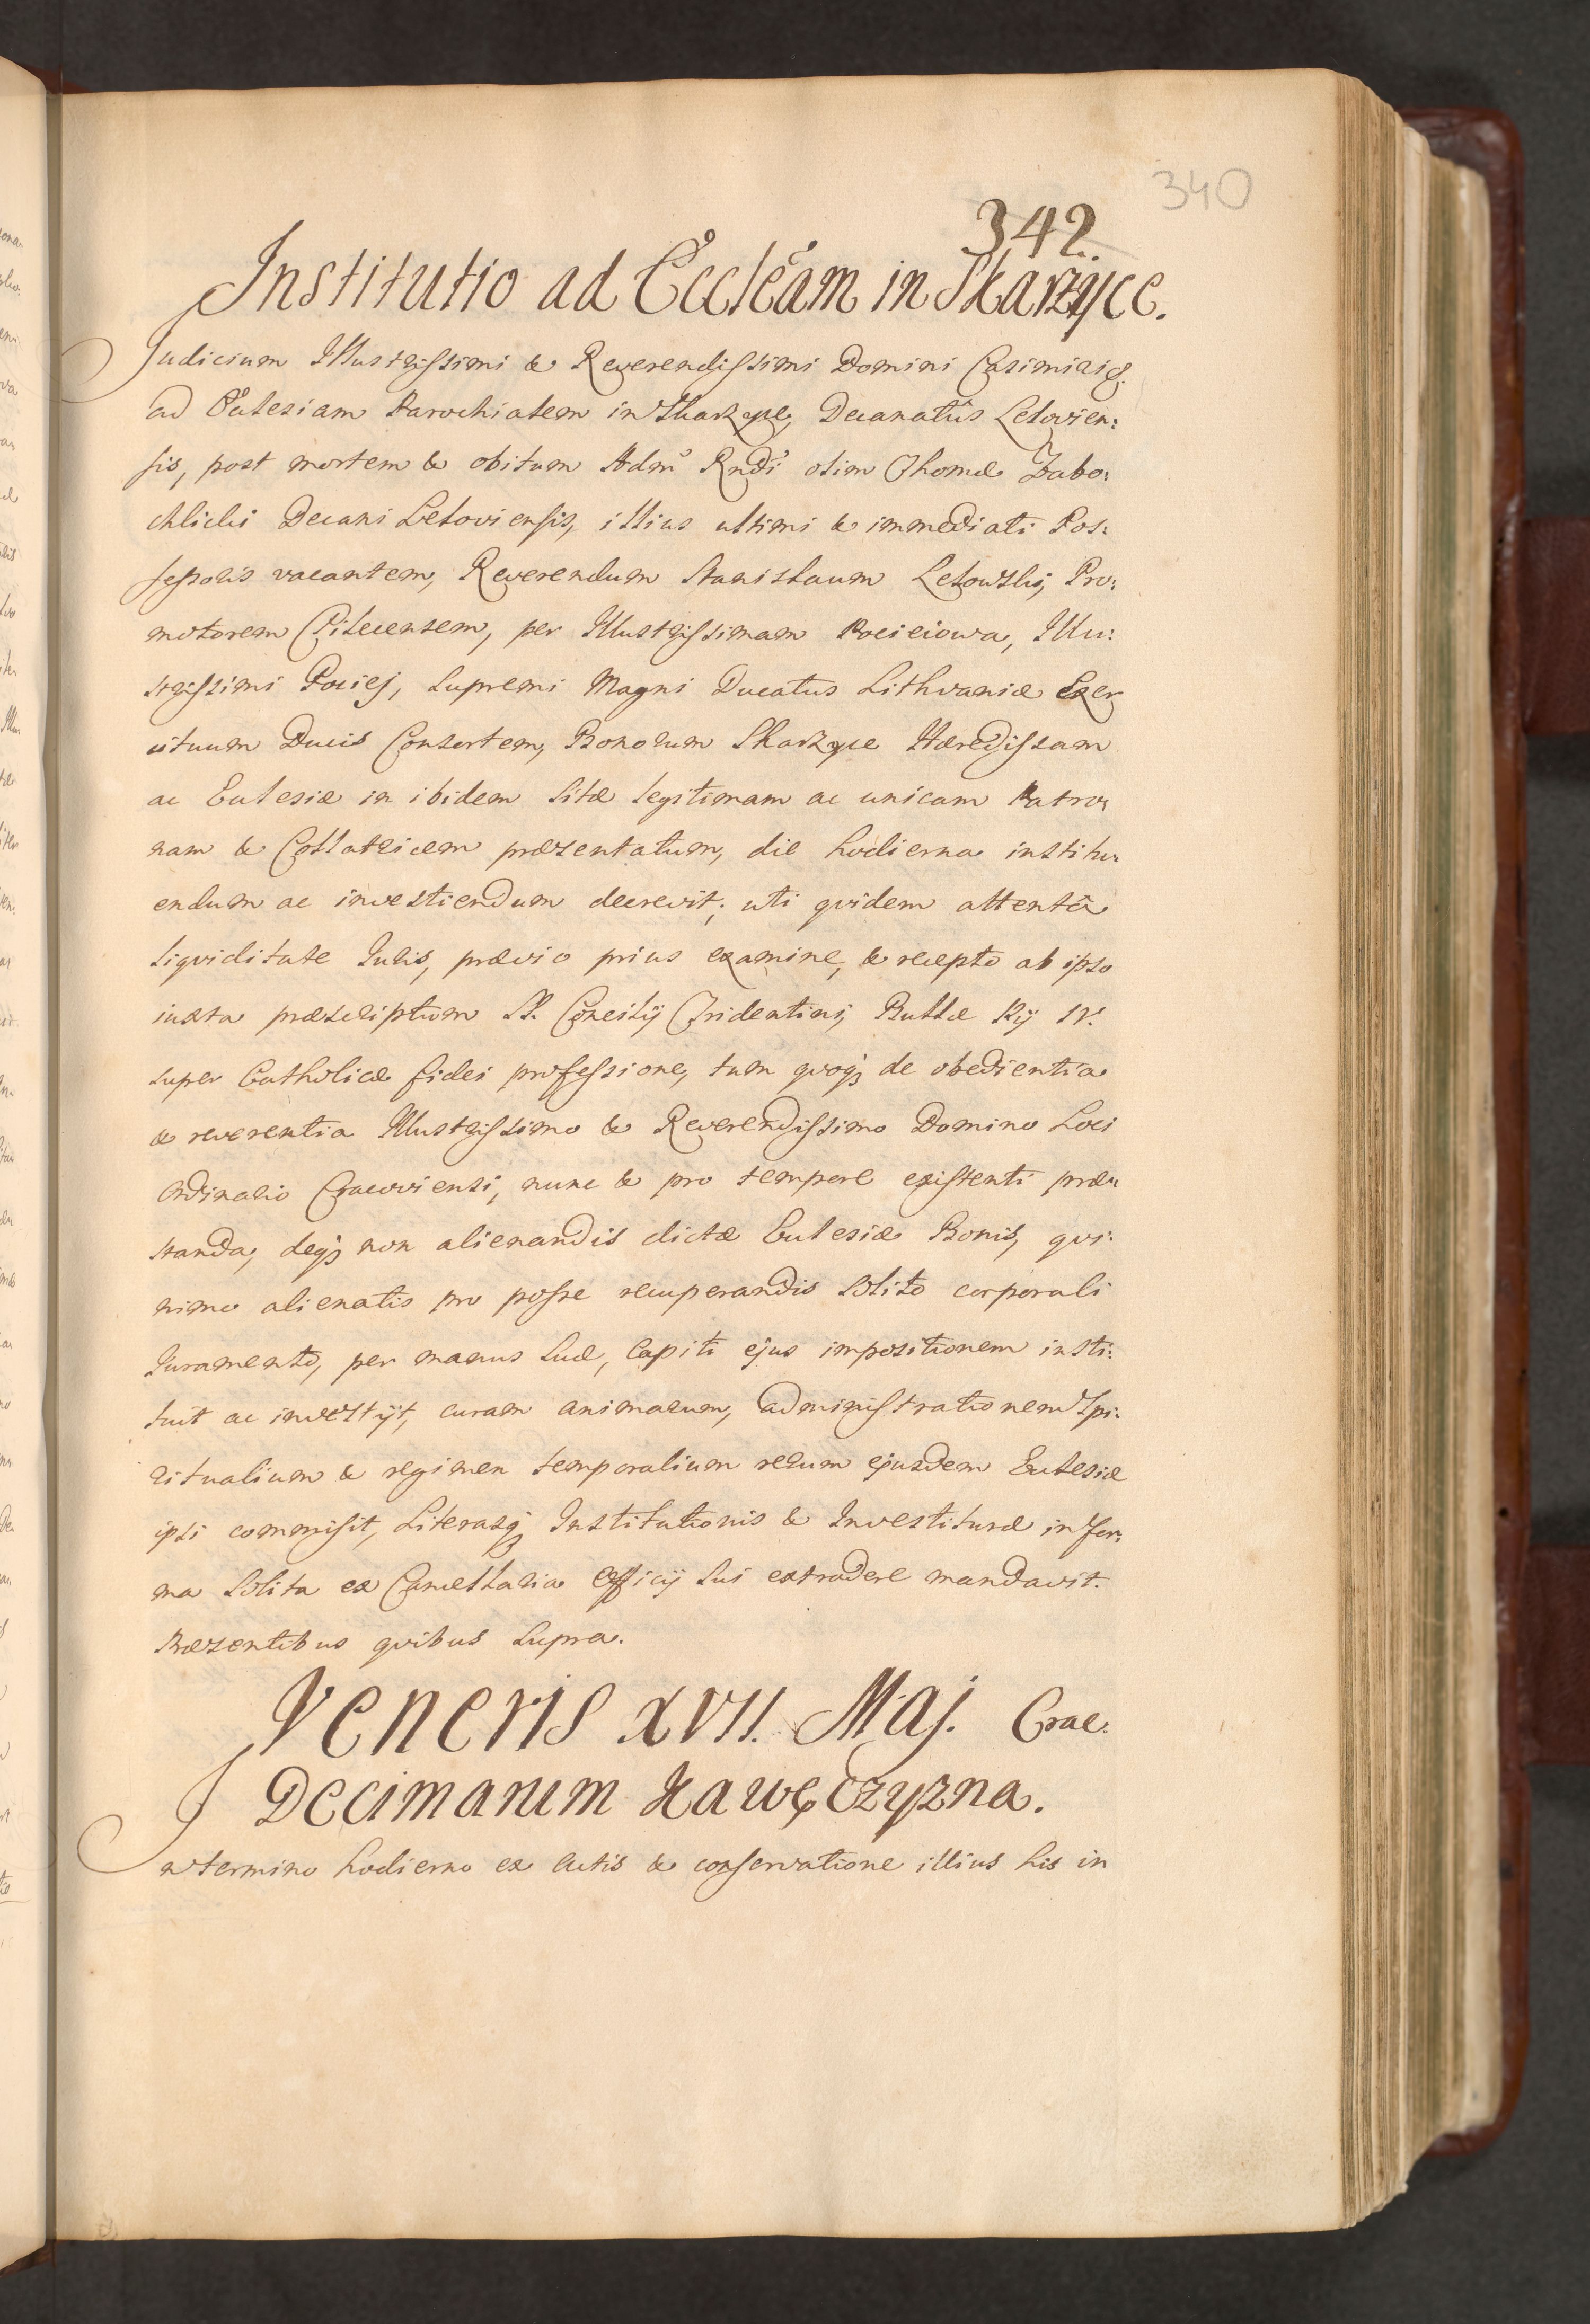 340
342.
Institutio ad Eccleam in Skarzyce.
Judicium Illustrissimi & Reverendissimi Domini Casimiri &.
ad Ecclesiam Parochialem in Skarzyce, Decanatûs Lelovien:
sis, post mortem & obitum Adm Rndi olim Thomæ Zabo:
chlicki Decani Leloviensis, illius ultimi & immediati Pos:
sessoris vacantem, Reverendum Stanislaum Letowski, Pro:
motorem Pilecensem, per Illustrissimam Pocieiowa, Illu:
strissimi Pociej, Supremi Magni Ducatus Lithvaniæ Exer
cituum Ducis Consortem, Bonorum Skarzyce Hæredissam
ac Ecclesiæ in ibidem sitæ legitimam ac unicam Patro:
nam & Collatricem præsentatum, die hodierna institu:
endum ac investiendum decrevit; uti qvidem attentâ
liqviditate Iuris, prævio prius examine, & recepto ab ipso
iuxta præscriptum S. Concilij Tridentini, Bullæ Pij IV.
super Catholicæ fidei professione, tum qvoq; de obedientia
& reverentia Illustrissimo & Reverendissimo Domino Loci
Ordinario Cracoviensi, nunc & pro tempore existenti præ:
standa, deq; non alienandis dictæ Ecclesiæ Bonis, qvi:
nimo alienatis pro posse recuperandis solito corporali
Iuramento, per manus suæ, Capiti ejus impositionem insti:
tuit ac investijt, curam animarum, administrationem Spi:
ritualium & regimen temporalium rerum ejusdem Ecclesiæ
ipsi commisit, Literasq; Institutionis & Investituræ in for:
ma solita ex Cancellaria Officij sui extradere mandavit.
Præsentibus qvibus supra.
Veneris XVII. Maj. Crac.
Decimarum Kawęczyzna.
In termino hodierno ex Actis & conservatione illius his in